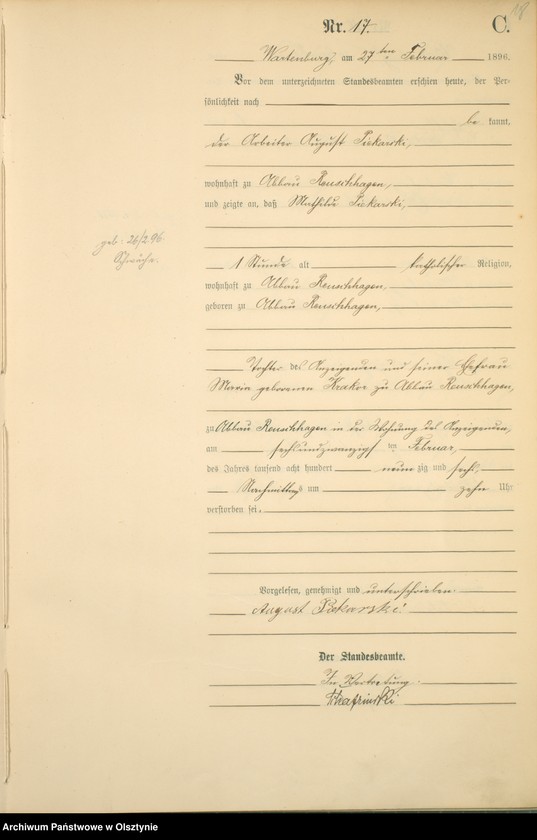 18
Nr. 17.
C.
Wartenburg, am 27ten Februar 1896.
Vor dem unterzeichneten Standesbeamten erschien heute, der Per-
sönlichkeit nach
be kannt,
der Arbeiter August Piekarski,
wohnhaft zu Abbau Reuschhagen,
und zeigte an, daß Mathilde Piekarski,
geb: 26/2.96.
Schwäche.
1 Stunde alt katholischer Religion,
wohnhaft zu Abbau Reuschhagen,
geboren zu Abbau Reuschhagen,
Tochter des Anzeigenden und seiner Ehefrau
Maria geborenen Krakor zu Abbau Reuschhagen,
zu Abbau Reuschhagen in der Wohnung des Anzeigenden,
am sechsundzwanzigsten Februar,
des Jahres tausend acht hundert neun zig und sechs,
Nachmittags um zehn Uhr
verstorben sei.
Vorgelesen, genehmigt und unterschrieben.
August Piekarski
Der Standesbeamte.
In Vertretung.
Archiwum Państwowe w Olsztynie